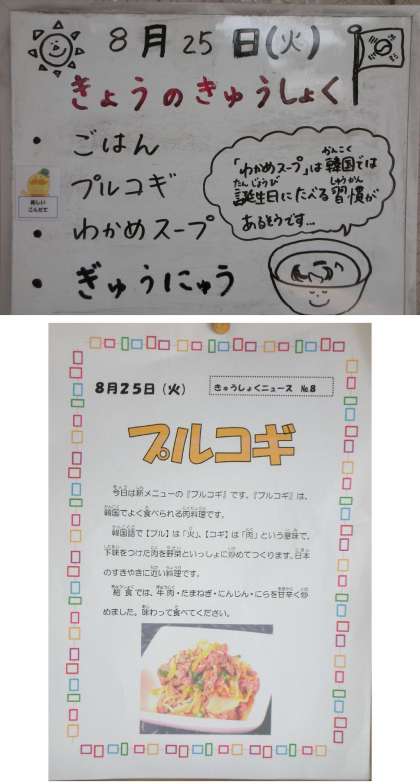 8月25日(火)
きょうのきゅうしょく
・ごはん
・プルコギ
・わかめスープ
・ぎゅうにゅう
新しい
こんだて
「わかめスープ」は韓国では
かんこく
誕生日にたべる習慣が
たんじょうび しゅうかん
あるそうです…
8月25日（火）
きゅうしょくニュース №8
プルコギ
今日は新メニューの『プルコギ』です。『プルコギ』は、
韓国でよく食べられる肉料理です。
韓国語で【プル】は「火」、【コギ】は「肉」という意味で、
下味をつけた肉を野菜といっしょに炒めてつくります。日本
のすきやきに近い料理です。
給食では、牛肉・たまねぎ・にんじん・にらを甘辛く炒
めました。味わって食べてください。